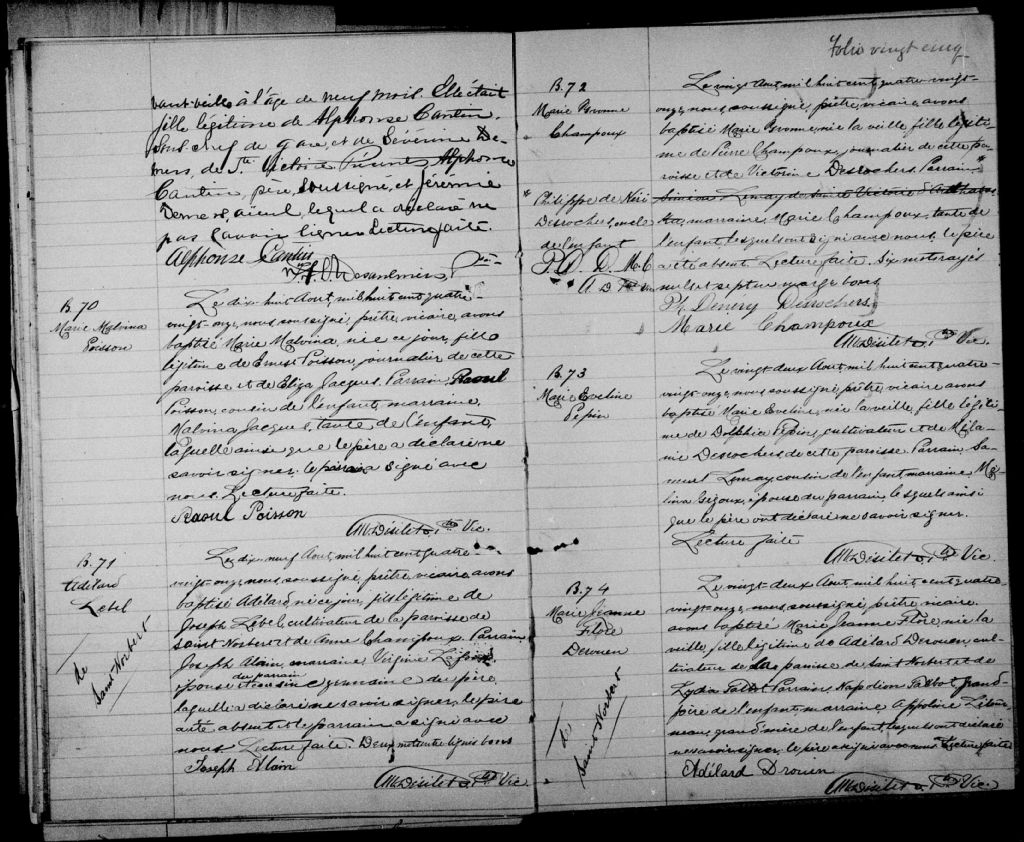 avant-veille à l'âge de neuf mois. Elle était
fille légitime de Alphonse Cantin,
sous chef de gare, et de Séverine De-
mers, de Ste Victoire. Présents Alphonse
Cantin, père, soussigné, et Jérémie
Demers, aieul, lequel a déclaré ne
pas savoir signer. Lecture faite.
Alphonse Cantin
Ptre
B. 70
Marie Malvina
Poisson
Le dix-huit Aout, mil huit cent quatre-
vingt-onze, nous soussigné, prêtre, vicaire, avons
baptisé Marie Malvina, née ce jour, fille
légitime de Ernest Poisson, journalier de cette
paroisse et de Eliza Jacques. Parrain, Raoul
Poisson, cousin de l'enfant, marraine,
Malvina Jacques, tante de l'enfant,
laquelle ainsi que le père a déclaré ne
savoir signer. le parrain a signé avec
nous. Lecture faite.
Raoul Poisson
Ptre Vic.
B. 71
Adélard
Lebel
de
Saint Norbert
Le dix-neuf Aout, mil huit cent quatre
vingt-onze, nous soussigné, prêtre, vicaire, avons
baptisé Adélard, né ce jour, fils légitime de
Joseph Lebel, cultivateur de la paroisse de
Saint Norbert et de Anne Champoux. Parrain
Joseph Alain, marraine Virginie
du parrain
épouse et cousine germaine du père,
laquelle a déclaré ne savoir signer, le père
a été absent et le parrain a signé avec
nous. Lecture faite. Deux mots entre lignes bons
Joseph Alain
Ptre Vic.
Folio vingt cinq
B. 72
Marie Yvonne
Champoux
Le vingt Aout, mil huit cent quatre-vingt-
onze, nous, soussigné, prêtre, vicaire, avons
baptisé Marie Yvonne, née la veille, fille légiti-
me de Pierre Champoux, journalier de cette pa-
roisse et de Victorine Desrochers. Parrain *
* Philippe de Néri
Desrochers, oncle
de l'enfant
P. D. D. M. C
A D Ptre Vic
Simeon Lemay de Sainte Victoire d'Arthabas-
ka, marraine, Marie Champoux, tante de
l'enfant, lesquels ont signé avec nous. le père
a été absent. Lecture faite. Six mots rayés
nuls et sept en marge bons.
Ph Denery Desrochers
Marie Champoux
Ptre Vic.
B. 73
Marie Eveline
Pepin
Le vingt-deux Aout, mil huit cent quatre-
vingt-onze, nous soussigné, prêtre, vicaire avons
baptisé Marie Eveline, née la veille, fille légiti-
me de Dolphis Pepin, cultivateur et de Méla-
nie Desrochers de cette paroisse. Parrain Sa-
muel Lemay, cousin de l'enfant, marraine
Gigoux, épouse du parrain, lesquels ainsi
que le père ont déclaré ne savoir signer.
Lecture faite
Ptre Vic
B. 74
Marie Jeanne
Flore
Derouen
de
Saint Norbert
Le vingt-deux Aout, mil huit cent quatre
vingt-onze, nous, soussigné, prêtre, vicaire
avons baptisé Marie Jeanne Flore, née la
veille, fille légitime de Adélard Derouen, cul-
tivateur de la paroisse de Saint Norbert et de
Lydia Talbot. Parrain, Napoléon Talbot, grand-
père de l'enfant, marraine Appoline
grand'mère de l'enfant, lesquels ont déclaré
ne savoir signer, le père a signé avec nous. Lecture faite
Adélard Drouin
Ptre Vic.